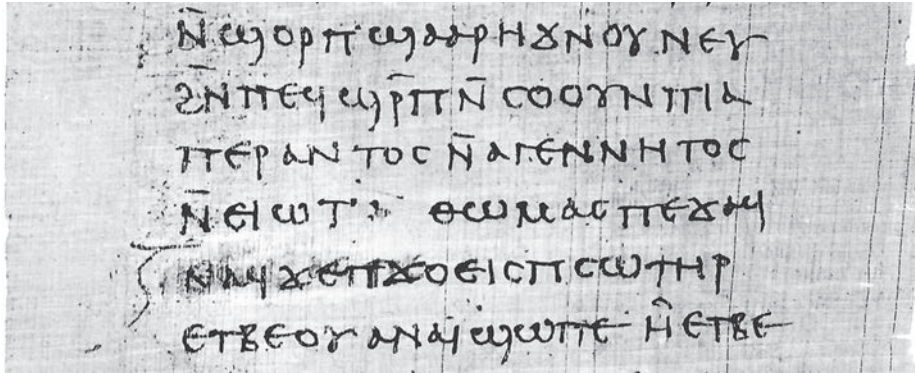 ⲛ̄ϣⲟⲣⲡ ϣⲁⲁⲣⲏϫⲛⲟⲩ ⲛⲉⲩ
ϩⲛ̄ ⲡⲉϥϣⲣ̄ⲡ ⲛ̄ⲥⲟⲟⲩⲛ ⲡⲓⲁ
ⲡⲉⲣⲁⲛⲧⲟⲥ ⲛ̄ⲁⲅⲉⲛⲛⲏⲧⲟⲥ
ⲛ̄ⲉⲓⲱⲧ· ⲑⲱⲙⲁⲥ ⲡⲉϫⲁϥ
ⲛⲁϥ ϫⲉ ⲡϫⲟⲉⲓⲥ ⲡⲥⲱⲧⲏⲣ
ⲉⲧⲃⲉ ⲟⲩ ⲁⲛⲁⲓ̈ ϣⲱⲡⲉ ⲏ̂ ⲉⲧⲃⲉ